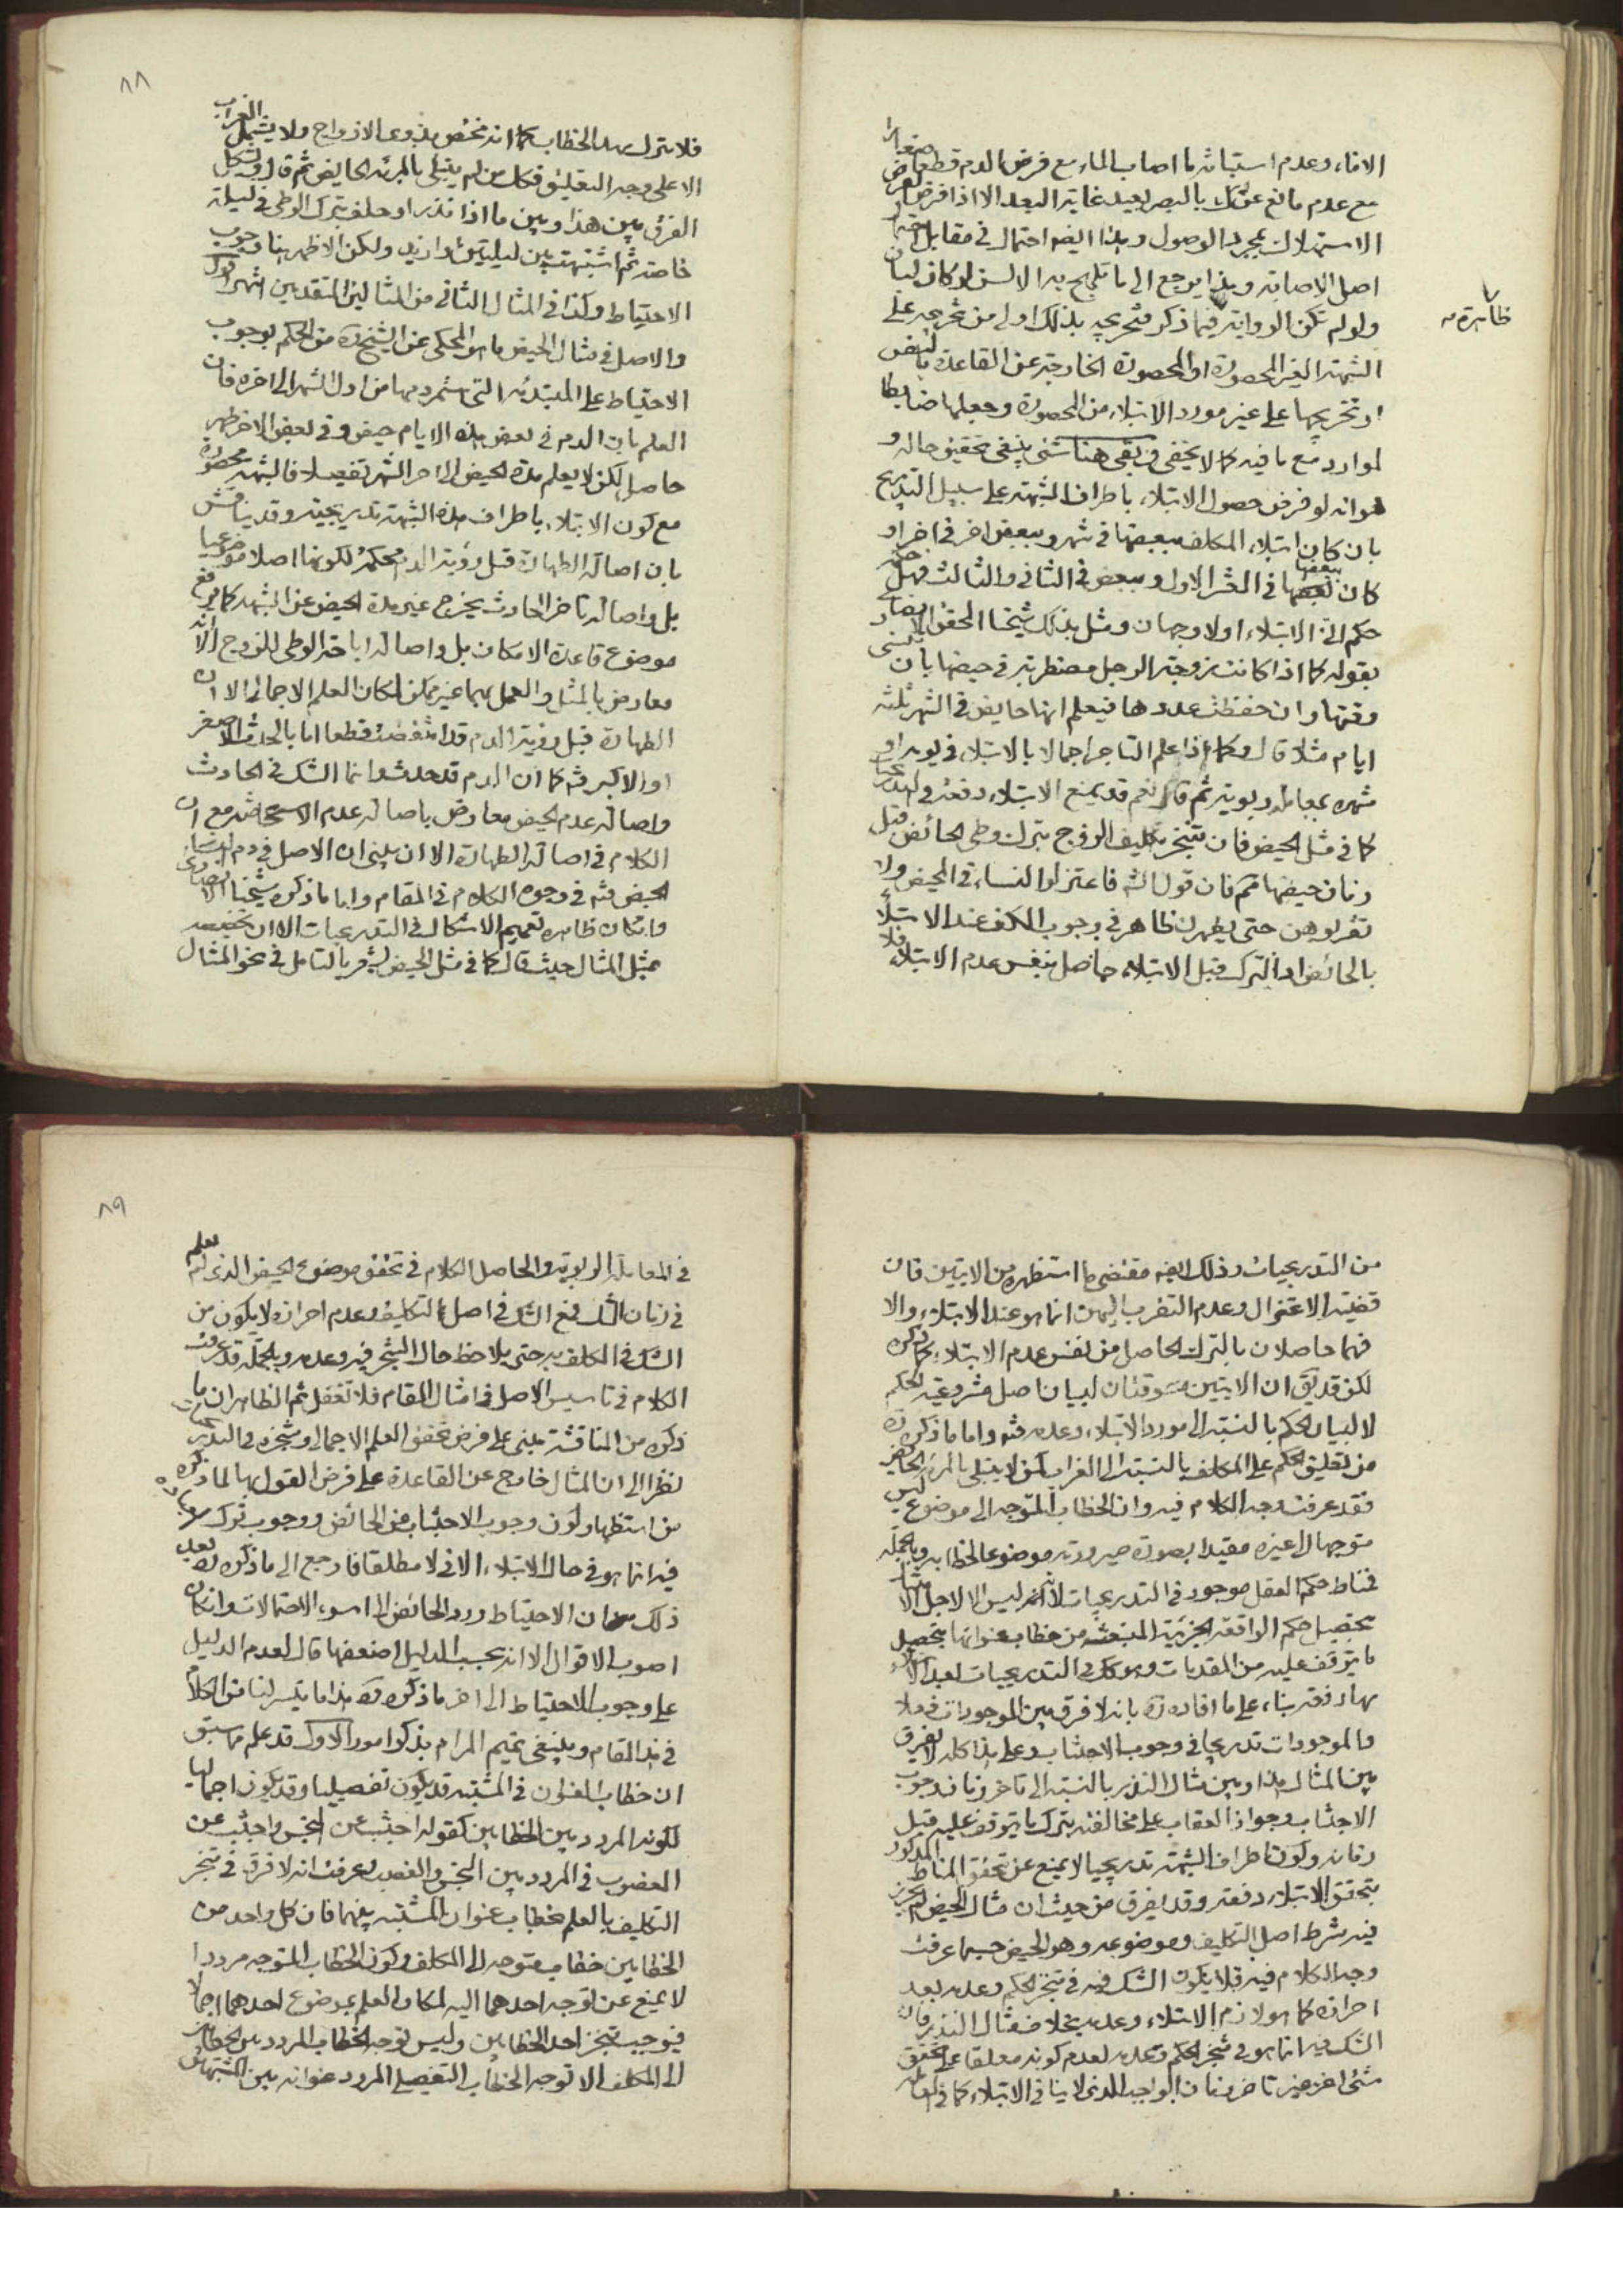 الاناء وعدم استبانة ما اصاب الماء مع فرض الدم قطعا صغارا
مع عدم مانع عن ذلك بالبصر بعيد غاية البعد الا اذا فرض
الاستهلاك بمجرد الوصول وهذا ايضا احتمال في مقابل
اصل الاصابة وهذا يرجع الى ما تلهج به الالسن لو كان لبان
ولو لم تكن الرواية فيما ذكر فتخريجه بذلك اولى من تخريجه على
ظاهرة
الشبهة الغير المحصورة او المحصورة الخارجة عن القاعدة بالنص
او تخريجها على غير مورد الابتلاء من المحصورة وجعلها ضابطا
لموارد مع ما فيه كما لا يخفى وبقى هنا شئ ينبغي تحقيق حاله و
هو انه لو فرض حصول الابتلاء باطراف الشبهة على سبيل التدريج
بان كان ابتلاء المكلف ببعضها في شهر وببعض اخر في اخر او
كان ببعضها في العشر الاول وببعض في الثاني والثالث فهل
حكم الابتلاء اولا وجهان ومثل بذلك شيخنا المحقق الانصاري
بقوله كما اذا كانت زوجة الرجل مضطربة في حيضها بان تنسى
وقتها وان حفظت عددها فيعلم انها حايض في الشهر ثلثة
ايام مثلا قال وكما اذا علم التاجر اجمالا بالابتلاء في يومه او
شهره بمعاملة ربوية ثم قال نعم قد يمنع الابتلاء دفعة في التدريجيات
كما في مثل الحيض فان تنجز تكليف الزوج بترك وطى الحائض قبل
زمان حيضها ممنوع فان قول الله فاعتزلوا النساء في المحيض ولا
تقربوهن حتى يطهرن ظاهر في وجوب الكف عند الابتلاء
بالحائض اذ الترك قبل الابتلاء حاصل بنفس عدم الابتلاء فلا
٨٨
الا على وجه التعليق فكل من لم يبتلى بالمرئة الحايض ثم قال ويشكل
الفرق بين هذا وبين ما اذا نذر او حلف بترك الوطى في ليلة
خاصة ثم اشتبهت بين ليلتين او ازيد ولكن الاظهر هنا وجوب
الاحتياط وكذا في المثال الثاني من المثالين المتقدمين انتهى اقول
والاصل في مثال الحيض ما هو المحكى عن الشيخ قده من الحكم بوجوب
الاحتياط على المبتدئة التي استمر دمها من اول الشهر الى اخره فان
العلم بان الدم في بعض هذه الايام حيض وفي بعض الاخر طهر
حاصل لكن لا يعلم مدة الحيض الى اخر الشهر تفصيلا فالشبهة محصورة
مع كون الابتلاء باطراف هذه الشبهة تدريجية وقد يناقش
بان اصالة الطهارة قبل رؤية الدم محكمة لكونها اصلا موضوعيا
بل واصالة تاخر الحادث يخرج غير مدة الحيض عن الشبهة كما في
موضوع قاعدة الامكان بل واصالة اباحة الوطى للزوج الا انه
معارض بالمثل والعمل بهما غير ممكن لمكان العلم الاجمالى الا ان
الطهارة قبل رؤية الدم قد انتقضت قطعا اما بالحدث الاصغر
او الاكبر فتم كما ان الدم قد حدث وانما الشك في الحادث
واصالة عدم الحيض معارض باصالة عدم الاستحاضة مع ان
الكلام في اصالة الطهارة الا ان يبنى ان الاصل في دم النساء
الحيض فتم في وجوه الكلام في المقام واما ما ذكره شيخنا الانصاري
وان كان ظاهره تعميم الاشكال في التدريجيات الا ان تخصيصه
بمثل المثال حيث قال كما في مثل الحيض يشعر بالتامل في نحو المثال
من التدريجيات وذلك ايضا مقتضى ما استظهره من الايتين فان
قضية الاعتزال وعدم التقرب اليهن انما هو عند الابتلاء والا
فهما حاصلان بالترك الحاصل من نفس عدم الابتلاء كما ذكره
لكن قد يق ان الايتين مسوقتان لبيان اصل مشروعية الحكم
لا لبيان الحكم بالنسبة الى مورد الابتلاء وعدمه فتم واما ما ذكره قده
من تعليق الحكم على المكلف بالنسبة الى الغراب لمن لا يبتلى بالمرئة الحايض
فقد عرفت وجه الكلام فيه وان الخطاب المتوجه الى موضوع ليس
متوجها الى غيره مقيدا بصورة صيرورته موضوعا لخطابه وبالجملة
فمناط حكم العقل موجود في التدريجيات لانه ليس الا لاجل الامتثال
بتحصيل حكم الواقعة الجزئية المنبعثة من خطاب عنوانها بتحصيل
ما يتوقف عليه من المقدمات وهو كك في التدريجيات لعبد
بها دفعة بناء على ما افاده قده بانه لا فرق بين الموجودات فعلا
والموجودات تدريجا في وجوب الاجتناب وعلى هذا كله لا يفرق
بين المثال هذا وبين مثال النذر بالنسبة الى تاخر زمانه فوجوب
الاجتناب وجواز العقاب على مخالفته بترك ما يتوقف عليه قبل
زمانه وكون اطراف الشبهة تدريجيا لا يمنع عن تحقق المناط المذكور
بتحقق الابتلاء دفعة وقد يفرق من حيث ان مثال الحيض لم يحرز
فيه شرط اصل التكليف وموضوعه وهو الحيض حسبما عرفت
وجه الكلام فيه فلا يكون الشك فيه في تنجز الحكم وعدمه بعد
احرازه كما هو لازم الابتلاء وعدمه بخلاف مثال النذر فان
الشك فيه انما هو في تنجز الحكم وعدمه لعدم كونه معلقا على تحقق
شئ اخر غير تاخر زمان الواجب الذي لا ينافي الابتلاء كما في
٨٩
في المعاملة الربوية والحاصل الكلام في تحقق موضوع الحيض الذي لم يعلم
في زمان الشك فمع الشك في اصل التكليف وعدم احرازه لا يكون من
الشك في المكلف به حتى يلاحظ حال التنجز فيه وعدمه وبالجملة قد عرفت
الكلام في تاسيس الاصل في امثال المقام فلا تغفل ثم الظاهر ان ما
ذكره من المناقشة مبنى على فرض تحقق العلم الاجمالى وتنجزه في التدريجيات
نظرا الى ان المثال خارج عن القاعدة على فرض القول بها لما ذكره
من استظهار كون وجوب الاجتناب عن الحائض ووجوب ترك
فيه انما هو في حال الابتلاء الانى لا مطلقا فارجع الى ما ذكره قده بعد
ذلك من ان الاحتياط ورد الحائض الى اسوء الاحتمالات وان كان
اصوب الاقوال الا انه بحسب الدليل اضعفها قال لعدم الدليل
على وجوب الاحتياط الى اخر ما ذكره قده هذا ما تيسر لنا من الكلام
في هذا المقام وينبغي تتميم المرام بذكر امور الاول قد علم مما سبق
ان خطاب العنوان في المشتبه قد يكون تفصيليا وقد يكون اجماليا
لكونه المردد بين الخطابين كقوله اجتنب عن النجس واجتنب عن
المغصوب في المردد بين النجس والغصب وعرفت انه لا فرق في تنجز
التكليف بالعلم بخطاب عنوان المشتبه بينهما فان كل واحد من
الخطابين خطاب متوجه الى المكلف وكون الخطاب المتوجه مرددا
لا يمنع عن توجه احدهما اليه لمكان العلم بموضوع احدهما اجمالا
فيوجب تنجز احد الخطابين وليس توجه الخطاب المردد بين الخطابين
الى المكلف الا توجه الخطاب التفصيلي المردد عنوانه بين المشتبهين